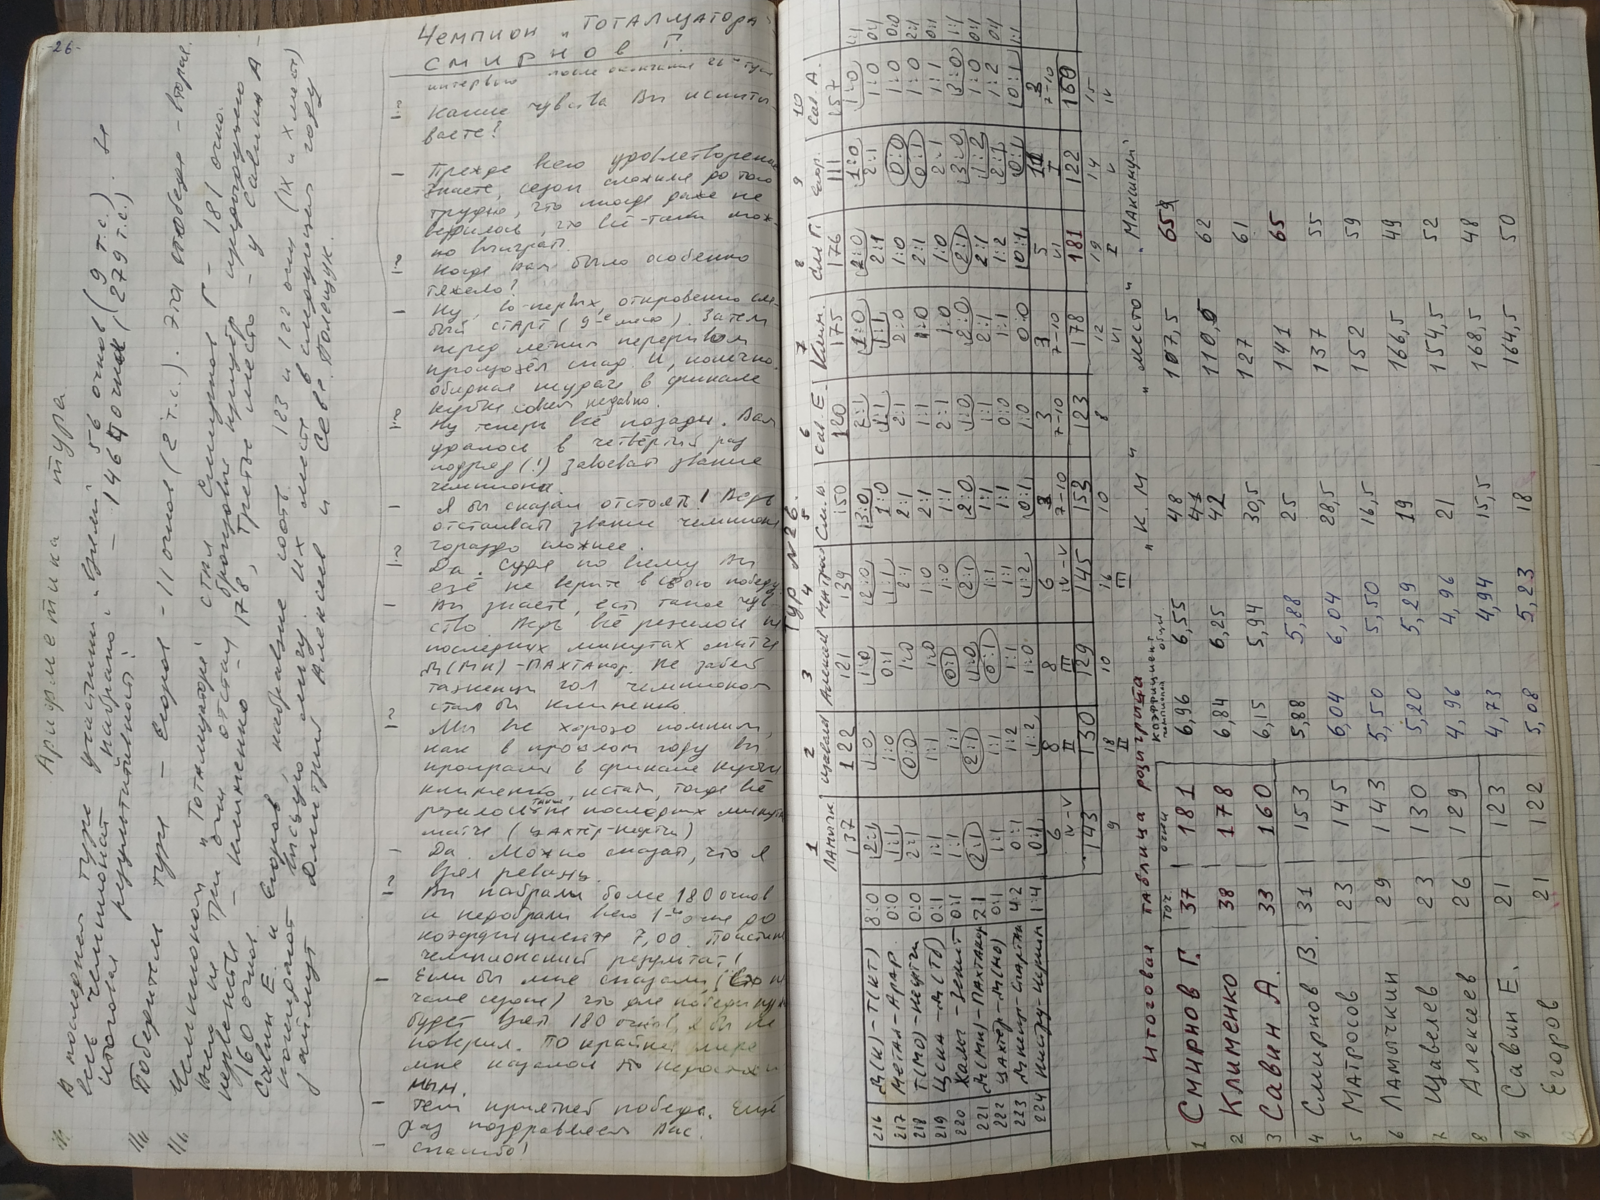 -26-
Арифметика тура
В последнем туре участники "взяли" 56 очков (9 т.с.). Н
весь чемпионат набрано - 1464 очков, (279 т.с.).
итоговая результативной.
Победители тура - Егоров - 11 очков (2 т.с.). Эта победа - вторая.
Чемпионом "Тотализатора" стал Смирнов Г. - 181 очко.
три очка отстал бронзовый призёр
первенства - Клименко - 178, третье место - у Савина А -
160 очков.
Савин Е. и Егоров набравшие соотв. 123 и 122 очка (IX и X места)
покидают высшую лигу. Их место в следующем году
займут Дмитрий Алексеев и Севр. Полещук.
Чемпион "Тотализатора"
Смирнов Г.
интервью после окончания 26го тура
- Какие чувства Вы испыты-
ваете?
- Прежде всего удовлетворение
Знаете, сезон сложился до того
трудно, что иногда даже не
верилось, что всё-таки мож-
но выиграть
- Когда Вам было особенно
тяжело?
- Ну, во-первых, откровенно сла-
бый старт (9-е место). Затем
перед летним перерывом
произошёл спад. И, конечно,
обидная неудача в финале
кубка совсем недавно.
- Ну теперь всё позади. Вам
удалось в четвёртый раз
подряд (!) завоевать звание
чемпиона.
- Я бы сказал отстоять! Ведь
отстаивать звание чемпиона
гораздо сложнее.
- Да. Судя по всему Вы
ещё не верите в свою победу.
- Вы знаете, есть такое чув-
ство. Ведь всё решилось на
последних минутах матча
Д(Мн)-Пахтакор. Не забей
ташкентцы гол чемпионом
стал бы Клименко.
- Мы все хорошо помним,
как в прошлом году Вы
проиграли в финале кубка
Клименко, кстати, тогда всё
решилось также на последних минутах
матча (Шахтёр-Нефтчи)
- Да. Можно сказать, что я
взял реванш.
- Вы набрали более 180 очков
и недобрали всего 1-о очко до
коэффициента 7,00. Поистине
чемпионский результат!
- Если бы мне сказали (в на-
чале сезона) что для победы нужно
будет взять 180 очков, я бы не
поверил. По крайней мере
мне казалось это нереаль-
ным.
- Тем приятней победа. Ещё
раз поздравляем Вас.
- Спасибо!
Тур №26.
1 2 3 4 5 6 7 8 9 10
Ламычк. Щавелев Алексеев Матрос См. В. Сав. Е. Клим. См. Г. Егор. Сав. А.
137 122 121 139 150 120 175 176 111 157
216 Д(К)-Т(КТ) 8:0 2:1 1:0 1:0 2:0 3:0 2:1 1:0 2:0 1:0 1:0 1:1
217 Метал-Арар. 0:0 1:1 1:0 0:1 1:1 1:0 1:1 1:1 2:1 2:1 1:0 0:1
218 Т(Мо)-Нефтчи 0:0 2:1 0:0 1:0 2:1 2:1 2:1 2:0 1:0 0:0 1:0 0:0
219 ЦСКА-Д(Тб) 0:1 1:1 1:1 1:0 1:0 2:1 1:1 1:0 2:1 0:1 1:0 2:1
220 Жальг-Зенит 0:1 1:1 1:1 0:1 1:0 1:1 2:1 1:0 1:0 2:1 1:1 0:1
221 Д(Мн)-Пахтакор 2:1 2:1 2:1 1:0 2:1 2:0 1:0 2:0 2:1 3:0 3:0 1:1
222 Шахтёр-Д(Мо) 0:1 1:1 1:1 0:1 1:1 1:1 1:1 2:1 2:1 1:2 1:0 0:1
223 Днепр-Спартак 4:2 0:1 1:2 1:1 1:1 1:1 0:0 1:1 1:2 2:1 1:2 0:1
224 Нистру-Черном 1:4 0:1 1:2 1:0 1:2 0:1 1:0 0:0 0:1 0:1 0:1 1:1
6 8 8 6 3 3 3 5 11 3
IV-V II III IV-V 7-10 7-10 7-10 VI I 7-10
143 130 129 145 153 123 178 181 122 160
9 18 10 16 10 8 12 19 14 15
II III VI I V IV
Итоговая таблица розыгрыша
точ очки коэффициент чемпионата общий "К. М" "Место" "Максимум"
1 Смирнов Г. 37 181 6,96 6,55 48 107,5 65
2 Клименко 38 178 6,84 6,25 42 110,5 62
3 Савин А. 33 160 6,15 5,94 30,5 127 61
4 Смирнов В. 31 153 5,88 5,88 25 141 65
5 Матросов 23 145 6,04 6,04 28,5 137 55
6 Ламычкин 29 143 5,50 5,50 16,5 152 59
7 Щавелев 23 130 5,20 5,29 19 166,5 49
8 Алексеев 26 129 4,96 4,96 21 154,5 52
9 Савин Е. 21 123 4,73 4,94 15,5 168,5 48
Егоров 21 122 5,08 5,23 18 164,5 50